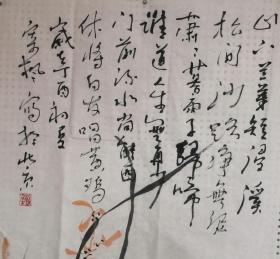 山下兰芽短浸溪
松间沙路净無泥
萧々暮雨子規啼
谁道人生無再少
门前流水尚能西
休将白发唱黄鸡
歲在丁酉初夏
寫於北京